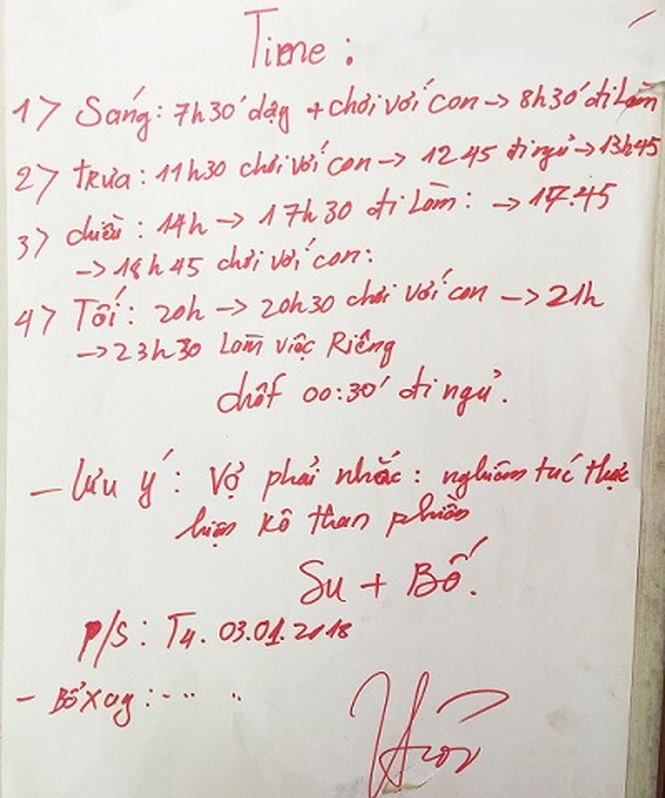 Time :
1> Sáng: 7h30' dậy + chơi với con -> 8h30' đi làm
2> trưa : 11h30 chơi với con -> 12 45 đi ngủ -> 13h45
3> chiều : 14h -> 17h30 đi làm : -> 17.45
-> 18h45 chơi với con :
4> Tối : 20h -> 20h30 chơi với con -> 21h
-> 23h30 làm việc Riêng
chốt 00:30' đi ngủ .
- lưu ý : vợ phải nhắc : nghiêm túc thực
hiện kô than phiền
Su + Bố .
P/S : T4. 03.01.2018